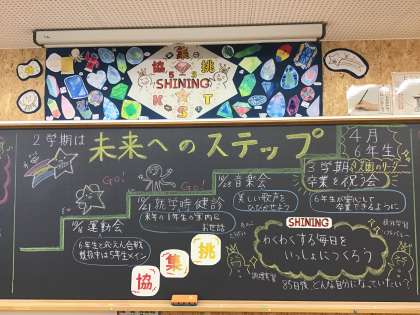 協 集 挑
5 3
SHINING
K S T
2学期は 未来へのステップ
4月
6年生
3学期
卒業を祝う会
6年生が安心して
卒業できるように
10/28 音楽会
美しい歌声を
ひびかせよう
GO!
10/21 就学時健診
来年の1年生が案内に
お世話
GO!
運動会
6年生と応えん合戦
競技すは5年生メイン
協 集 挑
SHINING
わくわくする毎日を
いっしょにつくろう
85日後、どんな自分になっていたい?